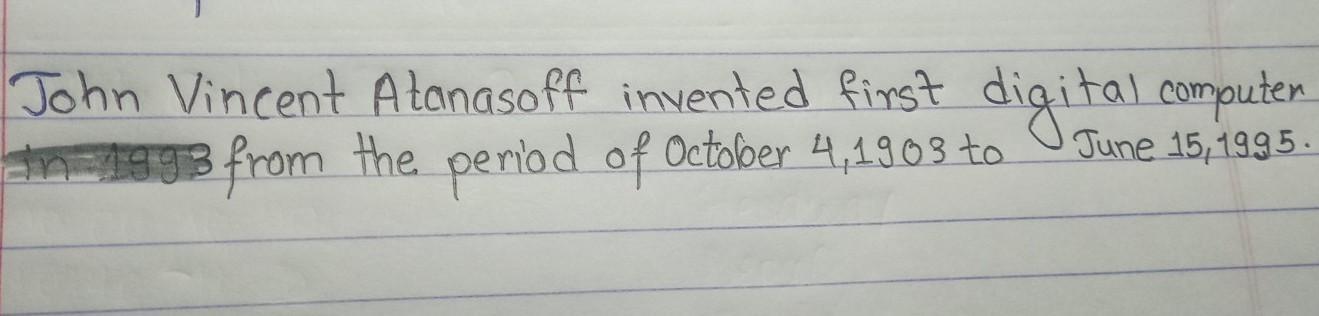 John Vincent Atanasoff invented first digital computer
in 1993 from the period of October 4,1903 to June 15,1995.